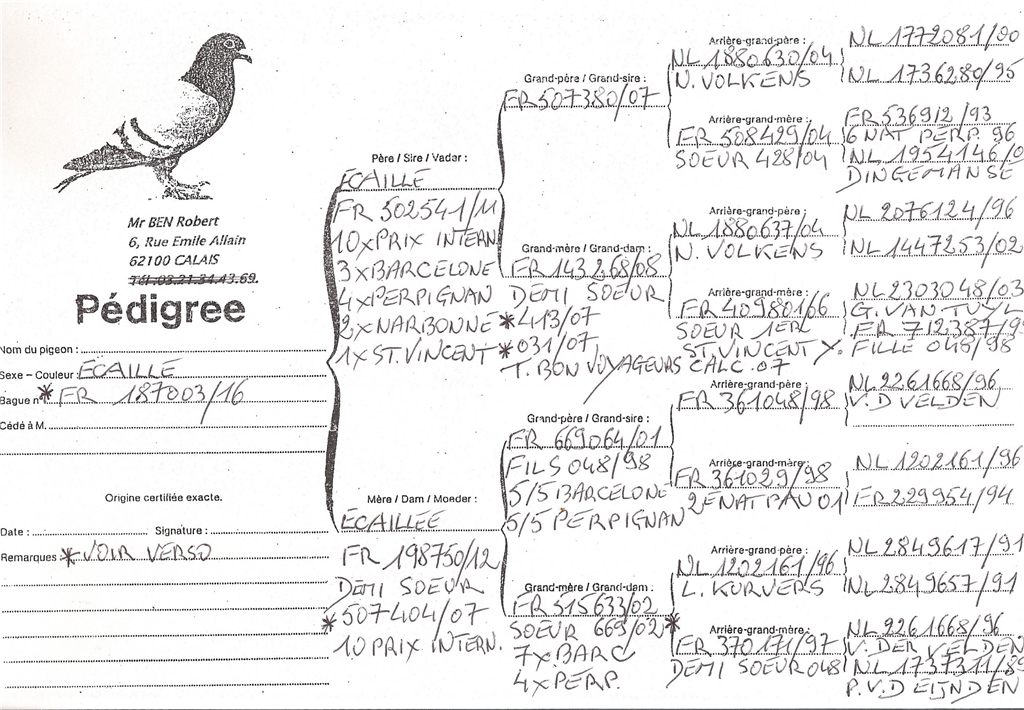 Mr BEN Robert
6, Rue Emile Allain
62100 CALAIS
Tél.03.21.34.43.69.
Pédigree
Nom du pigeon :
Sexe – Couleur : ECAILLE
Bague n° * FR 187003/16
Cédé à M.
Origine certifiée exacte.
Date : Signature :
Remarques : * VOIR VERSO
Père / Sire / Vader :
ECAILLE
FR 502541/11
10xPRIX INTERN
3xBARCELONE
4xPERPIGNAN
2xNARBONNE
1xST.VINCENT
Mère / Dam / Moeder :
ECAILLEE
FR 198750/12
DEMI SOEUR
* 507404/07
10 PRIX INTERN.
Grand-père / Grand-sire :
FR 507380/07
Grand-mère / Grand-dam :
FR 143268/08
DEMI SOEUR
* 413/07
* 031/07
T. BON VOYAGEURS CALC .07
Grand-père / Grand-sire :
FR 669064/01
FILS 048/98
5/5 BARCELONE
5/5 PERPIGNAN
Grand-mère / Grand-dam :
FR 515633/02
SOEUR 669/02 *
7xBARC
4xPERP.
Arrière-grand-père :
NL 1880630/04
N. VOLKENS
Arrière-grand-mère :
FR 508429/04
SOEUR 428/04
Arrière-grand-père :
NL 1880637/04
N. VOLKENS
Arrière-grand-mère :
FR 409801/06
SOEUR 1ER
ST. VINCENT Y.
Arrière-grand-père :
FR 361048/98
Arrière-grand-mère :
FR 361029/98
2E NAT PAU 01
Arrière-grand-père :
NL 1202161/96
L. KURVERS
Arrière-grand-mère :
FR 370171/97
DEMI SOEUR 048
NL 1772081/00
NL 1736280/95
FR 536912/93
6 NAT PERP. 96
NL 1954146/0
DINGEMANSE
NL 2076124/96
NL 1447253/02
NL 2303048/03
G. VAN TUYL
FR 712387/9
FILLE 048/98
NL 2261668/96
V.D VELDEN
NL 1202161/96
FR 229954/94
NL 2849617/91
NL 2849657/91
NL 2261668/96
V. DER VELDEN
NL 1737311/89
P.V.D EIJNDEN